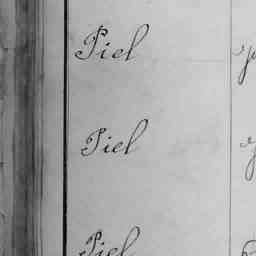 Piel
Piel
Piel